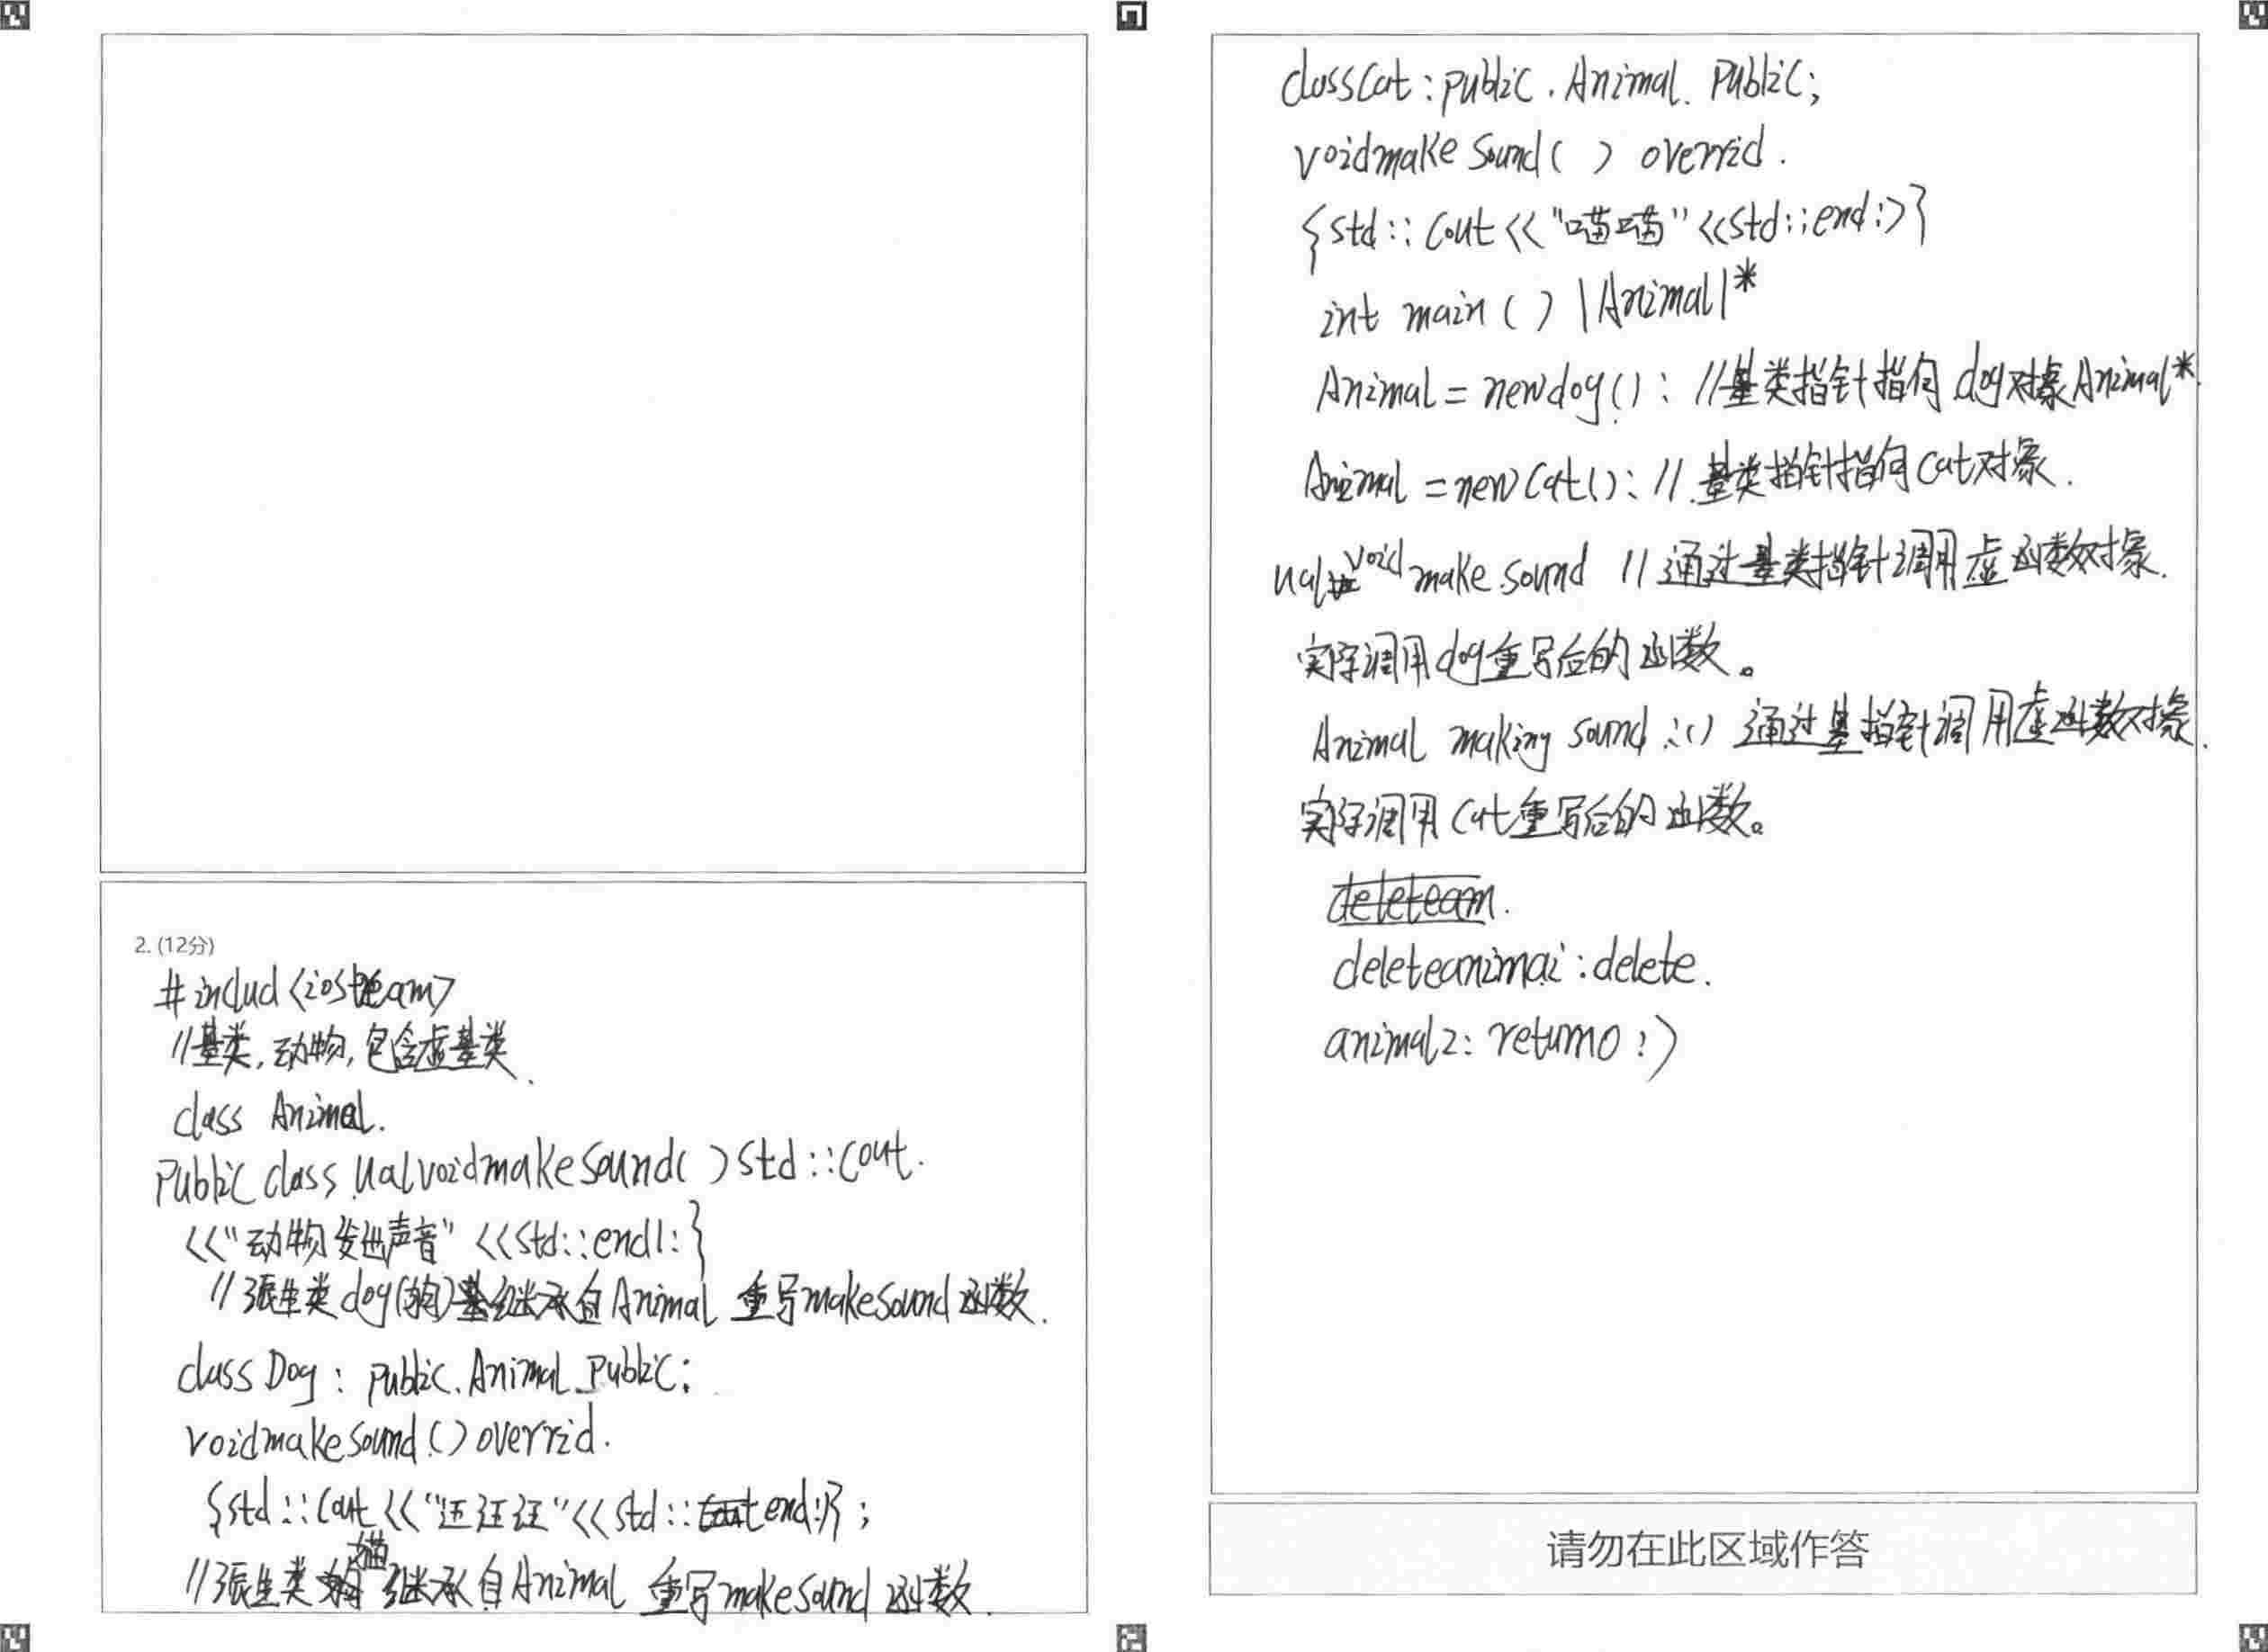 2. (12分)
#includ <iosteam>
//基类,动物,包含虚基类.
class Animal.
Public class ualvoidmakeSound( ) std::cout.
<<"动物发出声音" <<std::endl:}
//派生类dog(狗)继承自Animal 重写makeSound函数.
class Dog: public.Animal public:
voidmakeSound() overrid.
{std::cout<<"汪汪汪"<<std::end:}};
//派生类猫继承自Animal 重写makeSound函数.
classCat:public.Animal. Public;
voidmakeSound( ) overrid.
{std::cout<<"喵喵"<<std::end:>}
int main( ) |Animal|*
Animal = newdog(): //基类指针指向dog对象Animal*.
Animal = newCat(): //.基类指针指向Cat对象.
ual void make.sound //通过基类指针调用虚函数对象.
实际调用dog重写后的函数。
Animal making sound:() 通过基指针调用虚函数对象.
实际调用Cat重写后的函数。
deleteam.
deleteanimai:delete.
animal2: return0:)
请勿在此区域作答